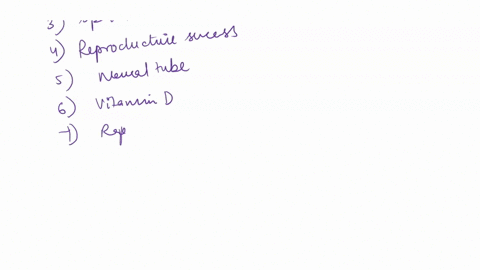 3)
4) Reproductive sucess
5) Neural tube
6) Vitamin D
7) Rep